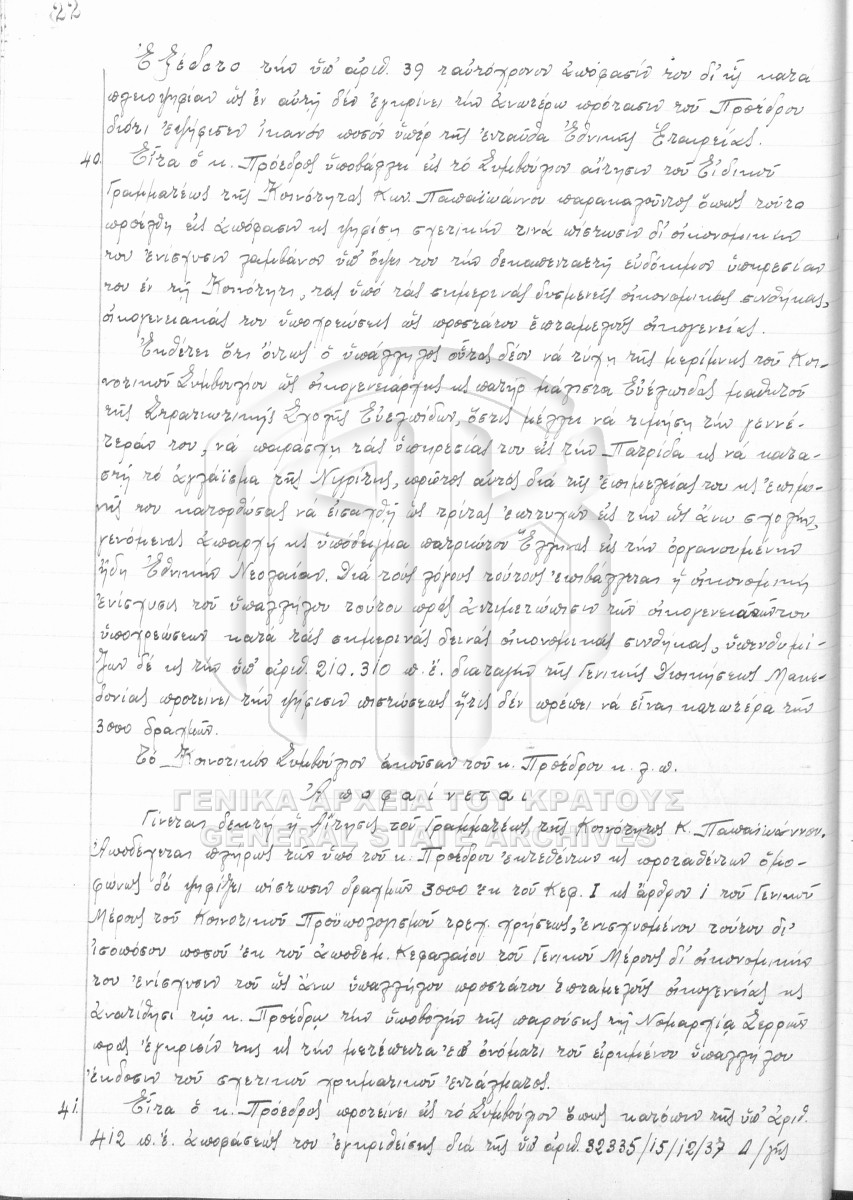 22
Ἐξέδοτο τὴν ὑπ' ἀριθ. 39 ταὐτόχρονον ἀπόφασίν του δι' ἧς κατὰ
πλειοψηφίαν ὡς ἐν αὐτῇ δὲν ἐγκρίνει τὴν ἀνωτέρω πρότασιν τοῦ Προέδρου
διότι ἐψήφισεν ἱκανὸν ποσὸν ὑπὲρ τῆς ἐνταῦθα Ἐθνικῆς Ἑταιρείας.
40. Εἶτα ὁ κ. Πρόεδρος ὑποβάλλει εἰς τὸ Συμβούλιον αἴτησιν τοῦ Εἰδικοῦ
Γραμματέως τῆς Κοινότητος Κων. Παπαϊωάννου παρακαλοῦντος ὅπως τοῦτο
προέλθῃ εἰς ἀπόφασιν κς ψηφίσῃ σχετικήν τινα πίστωσιν δι' οἰκονομικήν
του ἐνίσχυσιν λαμβάνον ὑπ' ὄψει του τὴν δεκαπενταετῆ εὐδόκιμον ὑπηρεσίαν
του ἐν τῇ Κοινότητι, τὰς ὑπὸ τὰς σημερινὰς δυσμενεῖς οἰκονομικὰς συνθήκας,
οἰκογενειακάς του ὑποχρεώσεις ὡς προστάτου ἑπταμελοῦς οἰκογενείας.
Ἐκθέτει ὅτι ὄντως ὁ ὑπάλληλος οὗτος δέον νὰ τύχῃ τῆς μερίμνης τοῦ Κοι-
νοτικοῦ Συμβουλίου ὡς οἰκογενειάρχης κς πατὴρ μάλιστα Εὐέλπιδος μαθητοῦ
τῆς Στρατιωτικῆς Σχολῆς Εὐελπίδων, ὅστις μέλλει νὰ τιμήσῃ τὴν γεννέ-
τειράν του, νὰ παράσχῃ τὰς ὑπηρεσίας του εἰς τὴν Πατρίδα κς νὰ κατα-
στῇ τὸ ἀγλάϊσμα τῆς Νιγρίτης, πρῶτος αὐτὸς διὰ τῆς ἐπιμελείας του κς ἐπιμο-
νῆς του κατορθώσας νὰ εἰσαχθῇ ὡς τρίτος ἐπιτυχὼν εἰς τὴν ὡς ἄνω σχολήν,
γενόμενος ἀπαρχὴ κς ὑπόδειγμα πατριώτου Ἕλληνος εἰς τὴν ὀργανουμένην
ἤδη Ἐθνικὴν Νεολαίαν. Διὰ τοὺς λόγους τούτους ἐπιβάλλεται ἡ οἰκονομικὴ
ἐνίσχυσις τοῦ ὑπαλλήλου τούτου πρὸς ἀντιμετώπισιν τῶν οἰκογενειακῶν του
ὑποχρεώσεων κατὰ τὰς σημερινὰς δεινὰς οἰκονομικὰς συνθήκας, ὑπενθυμί-
ζων δὲ κς τὴν ὑπ' ἀριθ. 210.310 π.ἔ. διαταγὴν τῆς Γενικῆς Διοικήσεως Μακε-
δονίας προτείνει τὴν ψήφισιν πιστώσεως ἥτις δὲν πρέπει νὰ εἶναι κατωτέρα τῶν
3000 δραχμῶν.
Τὸ Κοινοτικὸν Συμβούλιον ἀκοῦσαν τοῦ κ. Προέδρου κ.λ.π.
Ἀποφαίνεται
ΓΕΝΙΚΑ ΑΡΧΕΙΑ ΤΟΥ ΚΡΑΤΟΥΣ
Γίνεται δεκτὴ ἡ Αἴτησις τοῦ Γραμματέως τῆς Κοινότητος Κ. Παπαϊωάννου.
GENERAL STATE ARCHIVES
Ἀποδέχεται πλήρως τῶν ὑπὸ τοῦ κ. Προέδρου ἐκτεθέντων κς προταθέντων ὁμο-
φώνως δὲ ψηφίζει πίστωσιν δραχμῶν 3000 ἐκ τοῦ Κεφ. I κς ἄρθρου 1 τοῦ Γενικοῦ
Μέρους τοῦ Κοινοτικοῦ Προϋπολογισμοῦ τρεχ. χρήσεως, ἐνισχυομένου τούτου δι'
ἰσοπόσου ποσοῦ ἐκ τοῦ ἀποθεμ. Κεφαλαίου τοῦ Γενικοῦ Μέρους δι' οἰκονομικήν
του ἐνίσχυσιν τοῦ ὡς ἄνω ὑπαλλήλου προστάτου ἑπταμελοῦς οἰκογενείας κς
ἀνατίθησι τῷ κ. Προέδρῳ τὴν ὑποβολὴν τῆς παρούσης τῇ Νομαρχίᾳ Σερρῶν
πρὸς ἔγκρισίν της κς τὴν μετέπειτα ἐπ' ὀνόματι τοῦ εἰρημένου ὑπαλλήλου
ἔκδοσιν τοῦ σχετικοῦ χρηματικοῦ ἐντάλματος.
41. Εἶτα ὁ κ. Πρόεδρος προτείνει εἰς τὸ Συμβούλιον ὅπως κατόπιν τῆς ὑπ' ἀριθ.
412 π.ἔ. ἀποφάσεώς του ἐγκριθείσης διὰ τῆς ὑπ' ἀριθ. 32335/15/12/37 Δ/γῆς